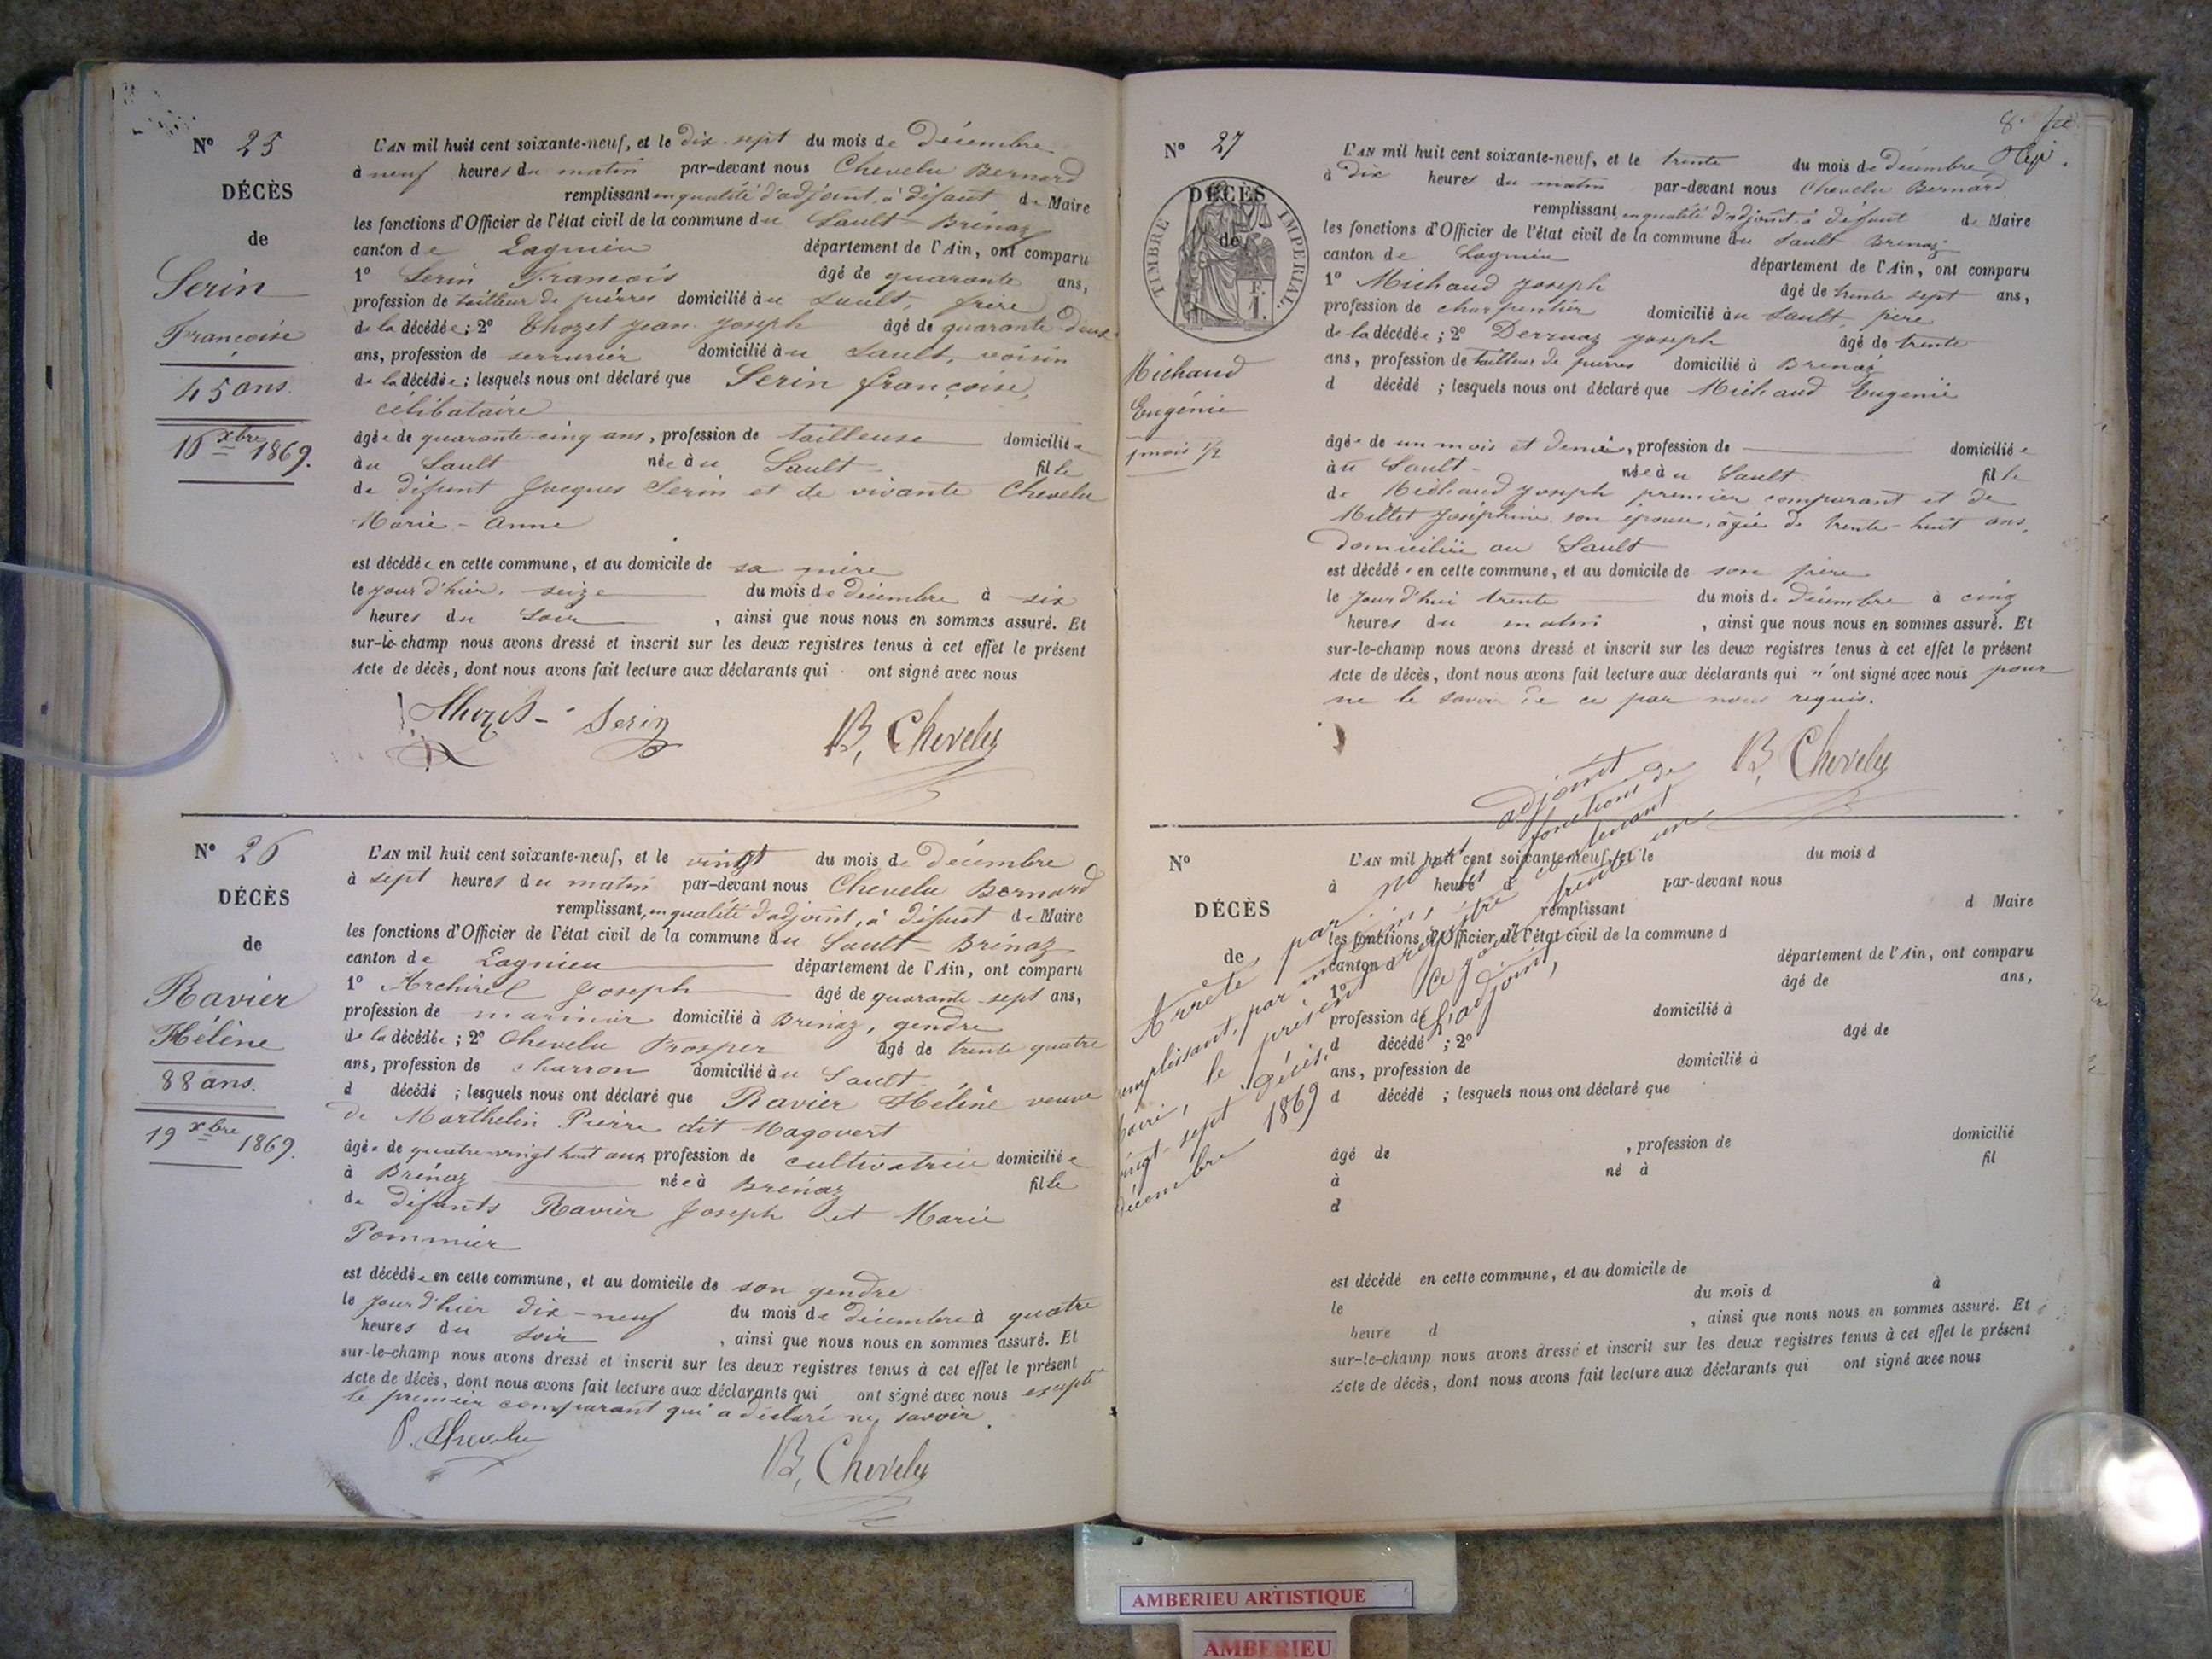 N° 25
DÉCÈS
de
Serin
Françoise
45 ans.
16 xbre 1869.
L'AN mil huit cent soixante-neuf, et le dix-sept du mois de Décembre
à neuf heures du matin par-devant nous Chevelu Bernard
remplissant en qualité d'adjoint, à défaut de Maire
les fonctions d'Officier de l'état civil de la commune du Sault-Brénaz
canton de Lagnieu département de l'Ain, ont comparu
1° Serin François âgé de quarante ans,
profession de tailleur de pierres domicilié au Sault, frère
de la décédée ; 2° Thozet Jean Joseph âgé de quarante-deux
ans, profession de serrurier domicilié au Sault, voisin
de la décédée ; lesquels nous ont déclaré que Serin françoise,
célibataire
âgée de quarante-cinq ans, profession de tailleuse domiciliée
au Sault née au Sault fille
de défunt Jacques Serin et de vivante Chevelu
Marie-Anne
est décédée en cette commune, et au domicile de sa mère
le jour d'hier, seize du mois de Décembre à six
heures du soir, ainsi que nous nous en sommes assuré. Et
sur-le-champ nous avons dressé et inscrit sur les deux registres tenus à cet effet le présent
Acte de décès, dont nous avons fait lecture aux déclarants qui ont signé avec nous
Thozet Serin B. Chevelu
N° 26
DÉCÈS
de
Ravier
Hélène
88 ans.
19 xbre 1869.
L'AN mil huit cent soixante-neuf, et le vingt du mois de Décembre
à sept heures du matin par-devant nous Chevelu Bernard
remplissant, en qualité d'adjoint, à défaut de Maire
les fonctions d'Officier de l'état civil de la commune du Sault-Brénaz
canton de Lagnieu département de l'Ain, ont comparu
1° Archirel Joseph âgé de quarante-sept ans,
profession de marinier domicilié à Brénaz, gendre
de la décédée ; 2° Chevelu Prosper âgé de trente quatre
ans, profession de charron domicilié au Sault
d décédé ; lesquels nous ont déclaré que Ravier Hélène veuve
de Marthelin Pierre dit Magovert
âgée de quatre-vingt huit ans, profession de cultivatrice domiciliée
à Brénaz née à Brénaz fille
de défunts Ravier Joseph et Marie
Pommier
est décédée en cette commune, et au domicile de son gendre
le jour d'hier dix-neuf du mois de Décembre à quatre
heures du soir, ainsi que nous nous en sommes assuré. Et
sur-le-champ nous avons dressé et inscrit sur les deux registres tenus à cet effet le présent
Acte de décès, dont nous avons fait lecture aux déclarants qui ont signé avec nous excepté
le premier comparant qui a déclaré ne savoir.
P. Chevelu B. Chevelu
N° 27
DÉCÈS
de
TIMBRE IMPERIAL
F. 1.
Michaud
Eugénie
1 mois 1/2
L'AN mil huit cent soixante-neuf, et le trente du mois de Décembre
à Dix heures du matin par-devant nous Chevelu Bernard
remplissant, en qualité d'adjoint, à défaut de Maire
les fonctions d'Officier de l'état civil de la commune du Sault-Brénaz
canton de Lagnieu département de l'Ain, ont comparu
1° Michaud Joseph âgé de trente sept ans,
profession de charpentier domicilié au Sault, père
de la décédée ; 2° Derruaz Joseph âgé de trente
ans, profession de tailleur de pierres domicilié à Brénaz
d décédé ; lesquels nous ont déclaré que Michaud Eugénie
âgée de un mois et demi, profession de domiciliée
au Sault née au Sault fille
de Michaud Joseph premier comparant et de
Millet Joséphine son épouse, âgée de trente-huit ans,
domiciliée au Sault
est décédée en cette commune, et au domicile de son père
le Jour d'hui trente du mois de Décembre à cinq
heures du matin, ainsi que nous nous en sommes assuré. Et
sur-le-champ nous avons dressé et inscrit sur les deux registres tenus à cet effet le présent
Acte de décès, dont nous avons fait lecture aux déclarants qui n'ont signé avec nous pour
ne le savoir de ce par nous requis.
B. Chevelu
N°
DÉCÈS
de
L'AN mil huit cent soixante-neuf, et le du mois d
à heures d par-devant nous
remplissant d Maire
les fonctions d'Officier de l'état civil de la commune d
canton d département de l'Ain, ont comparu
1° âgé de ans,
profession de domicilié à
d décédé ; 2° âgé de
ans, profession de domicilié à
d décédé ; lesquels nous ont déclaré que
âgé de , profession de domicilié
à né à fil
d
est décédé en cette commune, et au domicile de
le du mois d à
heure d , ainsi que nous nous en sommes assuré. Et
sur-le-champ nous avons dressé et inscrit sur les deux registres tenus à cet effet le présent
Acte de décès, dont nous avons fait lecture aux déclarants qui ont signé avec nous
Arrêté par nous adjoint
remplissant, par intérim, fonctions de
Maire, le présent registre contenant
vingt-sept décès, ce jour trente un
décembre 1869
L'adjoint,
AMBERIEU ARTISTIQUE
AMBERIEU